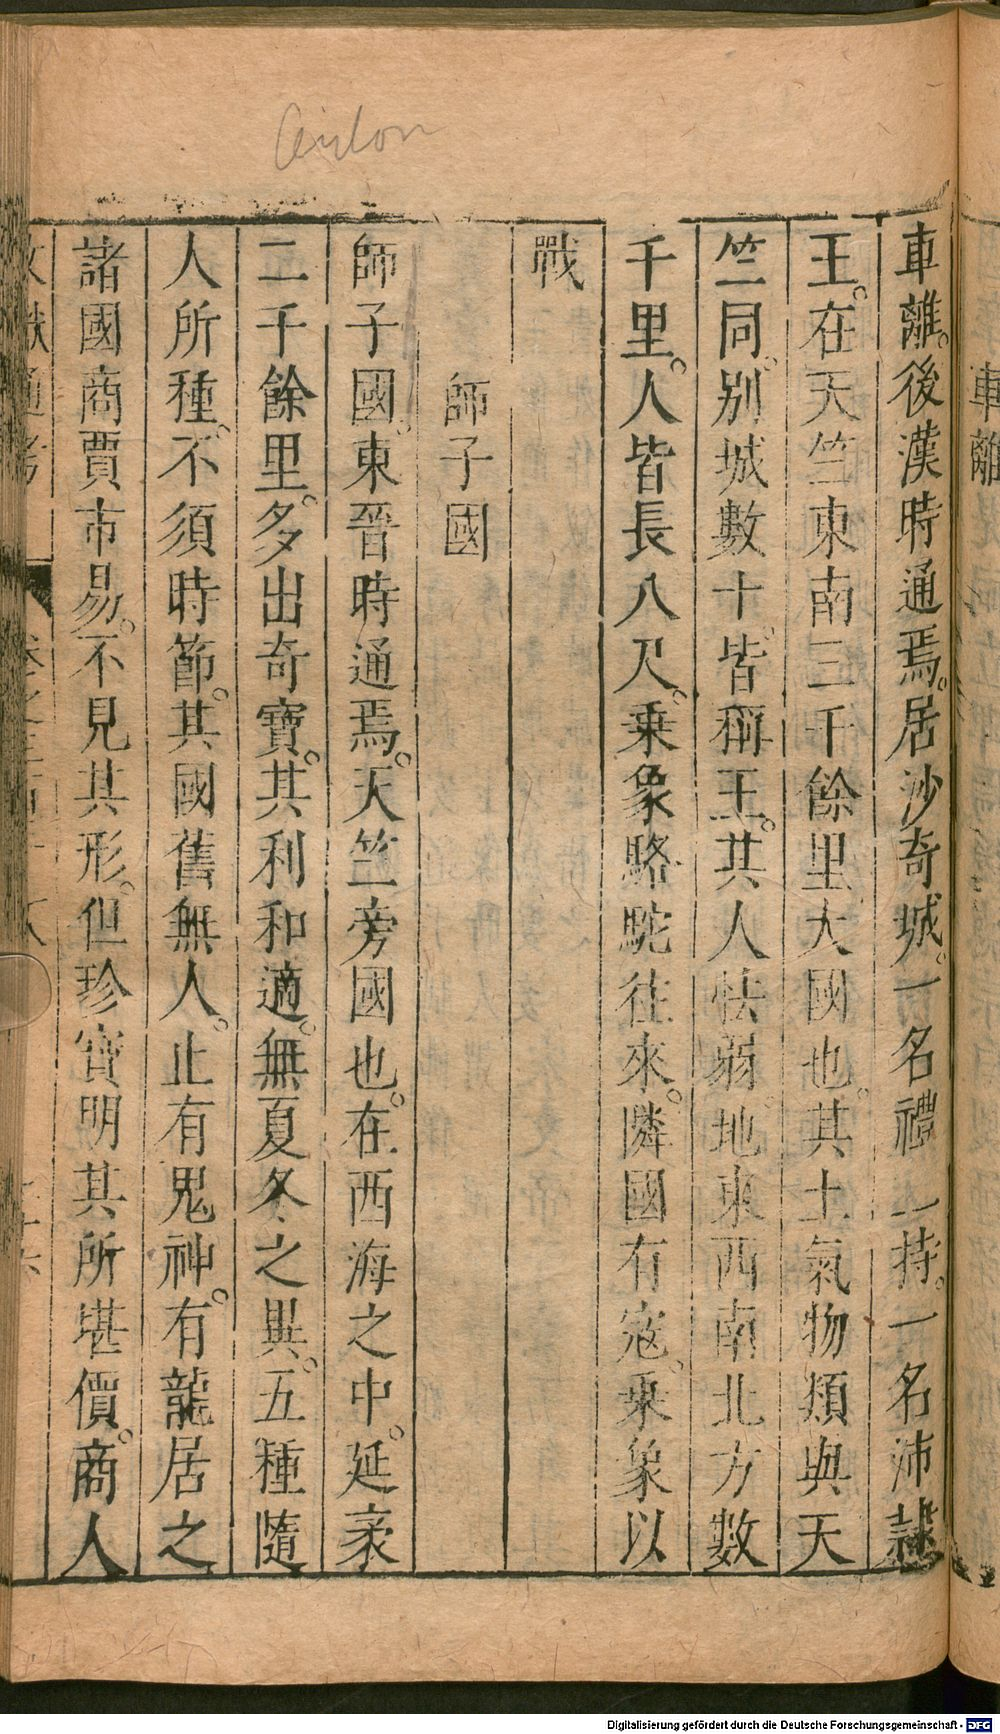 Ceylon
車離。後漢時通焉。居沙奇城。一名禮惟特。一名沛隷
王。在天竺東南三千餘里。大國也。其土氣物類與天
竺同。別城數十。皆稱王。其人怯弱。地東西南北方數
千里。人皆長八尺。乘象駱駝往來。隣國有寇。乘象以
戰
師子國
師子國。東晉時通焉。天竺旁國也。在西海之中。延袤
二千餘里。多出奇寶。其利和適。無夏冬之異。五種隨
人所種。不須時節。其國舊無人。止有鬼神。有龍居之
諸國商賈市易。不見其形。但珍寶明其所堪價。商人
車離
Digitalisierung gefördert durch die Deutsche Forschungsgemeinschaft - DFG